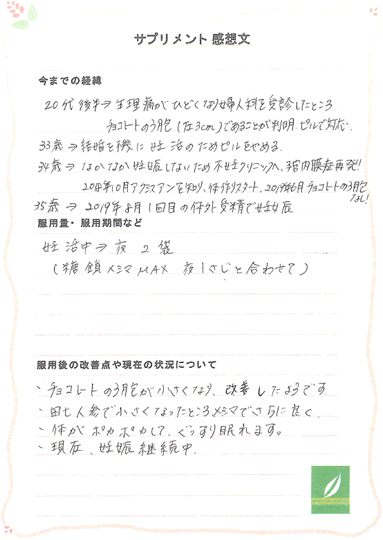 サプリメント 感想文
今までの経緯
20代後半⇒生理痛がひどくなり婦人科を受診したところ
チョコレートのう胞(左3cm)であることが判明.ピルで対応.
33歳⇒結婚を機に妊活のためピルをやめる.
34歳⇒なかなか妊娠しないため不妊クリニックへ.子宮内膜症再発!!
2018年10月アクシスアンを知り、体作りスタート、2019年6月チョコレートのう胞
なし!
35歳⇒2019年8月1回目の体外受精で妊娠
服用量・服用期間など
妊活中⇒夜2袋
(糖鎖メシマMAX 夜1さじと合わせて)
服用後の改善点や現在の状況について
・チョコレートのう胞が小さくなり、改善したようです
・田七人参で小さくなったところメシマでさらに良く.
・体がポカポカして、ぐっすり眠れます。
・現在、妊娠継続中.